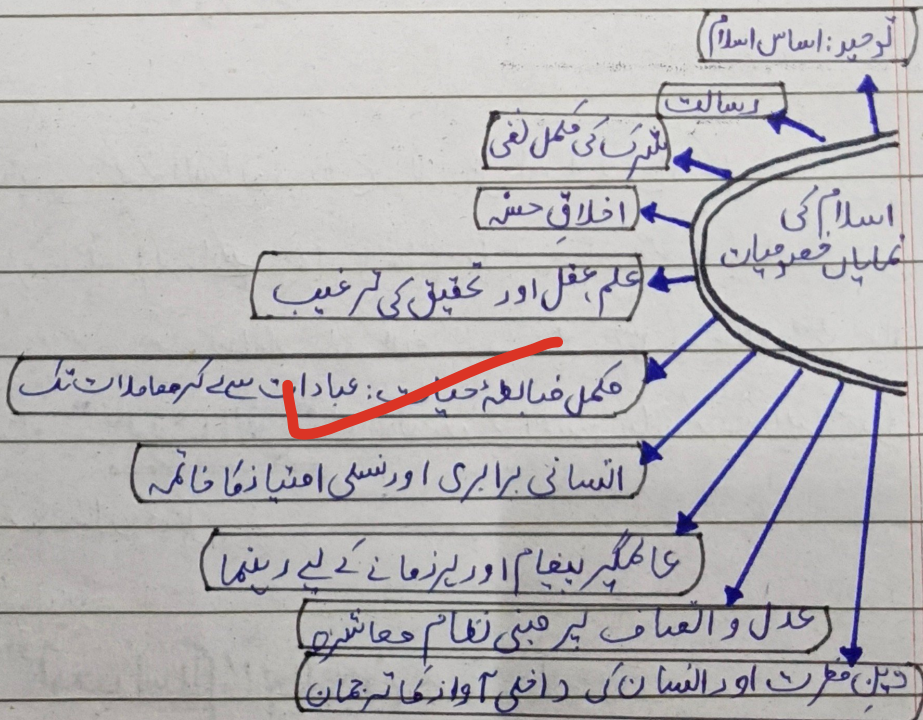 توحید: اساس اسلام
رسالت
شرک کی مکمل نفی
اسلام کی
نمایاں خصوصیات
اخلاقِ حسنہ
علم، عقل اور تحقیق کی ترغیب
مکمل ضابطۂ حیات: عبادات سے لے کر معاملات تک
انسانی برابری اور نسلی امتیاز کا خاتمہ
عالمگیر پیغام اور ہر زمانے کے لیے رہنما
عدل و انصاف پر مبنی نظام معاشرہ
دینِ فطرت اور انسان کی داخلی آواز کا ترجمان